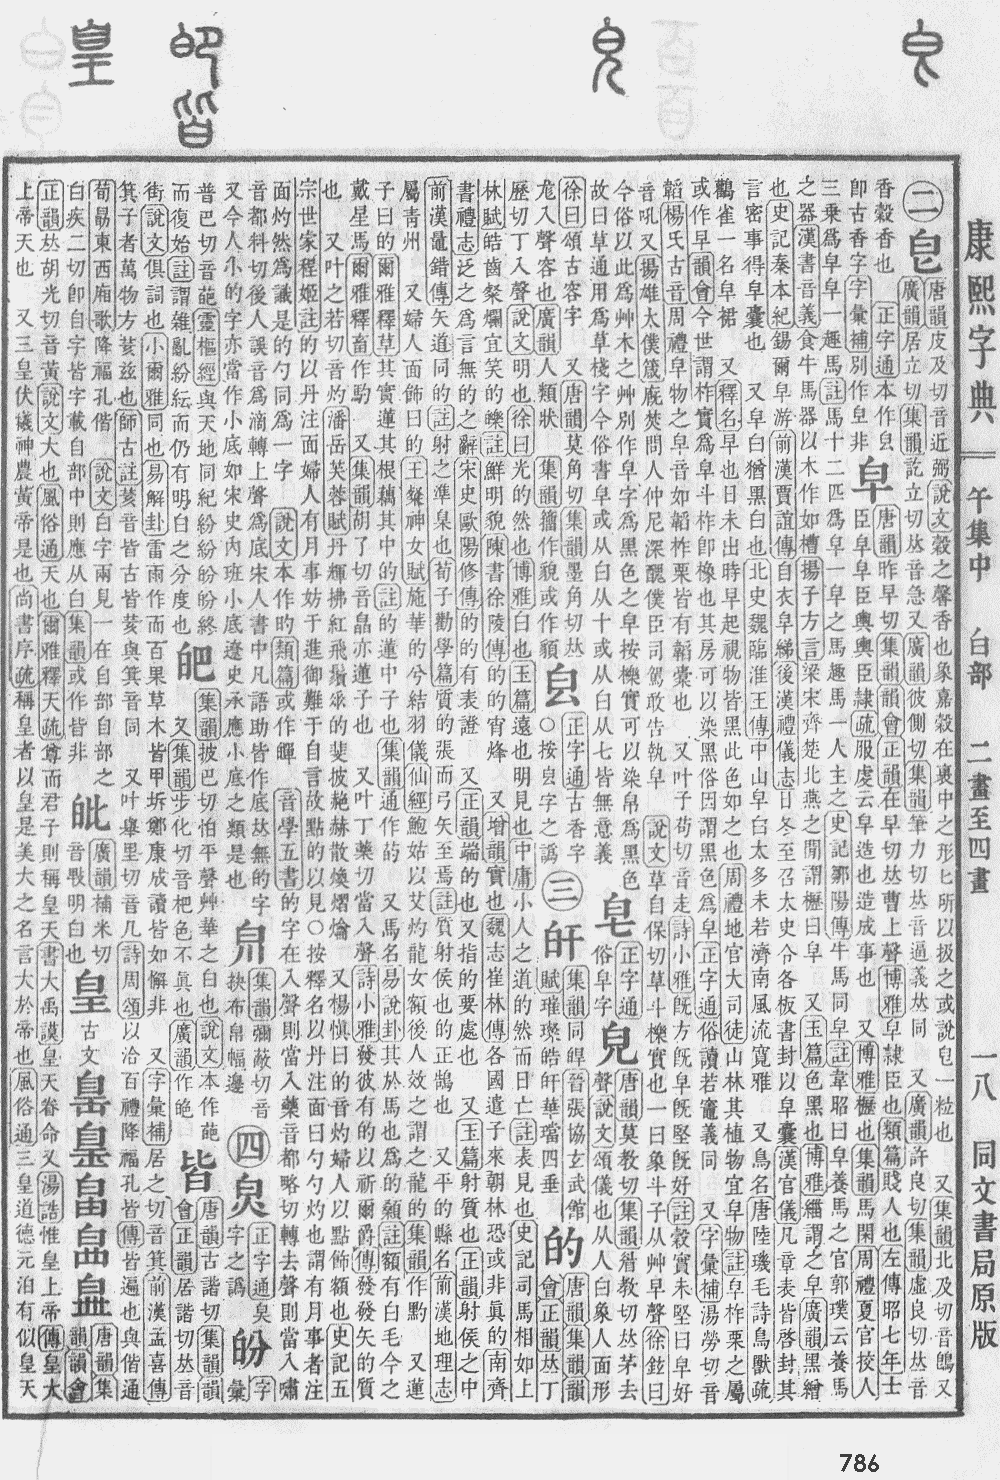 康熙字典 午集中 白部 二畫至四畫 一八 同文書局原版
二皀唐韻皮及切音近弼說文穀之馨香也象嘉穀在裹中之形匕所以扱之或說皀一粒也 又集韻北及切音鵖又
廣韻居立切集韻訖立切𠀤音急又廣韻彼側切集韻筆力切𠀤音逼義𠀤同 又廣韻許良切集韻虛良切𠀤音
香穀香也 正字通本作皀
卽古香字字彙補別作皇非
皁唐韻昨早切集韻韻會正韻在早切𠀤曹上聲博雅皁隸臣也類篇賤人也左傳昭七年士
臣皁皁臣輿輿臣隸疏服虔云皁造也造成事也 又博雅櫪也集韻馬閑周禮夏官挍人
三乗爲皁皁一趣馬註馬十二匹爲皁一皁之馬趣馬一人主之史記鄒陽傳牛馬同皁註韋昭曰皁養馬之官郭璞云養馬
之器漢書音義食牛馬器以木作如槽揚子方言梁宋齊楚北燕之閒謂櫪曰皁 又玉篇色黑也博雅緇謂之皁廣韻黑繒
也史記秦本紀錫爾皁游前漢賈誼傳自衣皁綈後漢禮儀志日冬至召太史令各板書封以皁囊漢官儀凡章表皆啓封其
言密事得皁囊也 又皁白猶黑白也北史魏臨淮王傳中山皁白太多未若濟南風流寬雅 又鳥名唐陸璣毛詩鳥獸疏
鸛雀一名皁裙 又釋名早也日未出時早起視物皆黑此色如之也周禮地官大司徒山林其植物宜皁物註皁柞栗之屬
或作早韻會今世謂柞實爲皁斗柞卽橡也其房可以染黑俗因謂黑色爲皁正字通俗讀若竈義同 又字彙補湯勞切音
韜楊氏古音周禮皁物之皁音如韜柞栗皆有韜彙也 又叶子苟切音走詩小雅旣方旣皁旣堅旣好註穀實未堅曰皁好
音吼又揚雄太僕箴廐焚問人仲尼深醜僕臣司駕敢告執皁 說文草自保切草斗櫟實也一曰象斗子从艸早聲徐鉉曰
今俗以此爲艸木之艸別作皁字爲黑色之皁按櫟實可以染帛爲黑色
故曰草通用爲草棧字今俗書皁或从白从十或从白从七皆無意義
皂正字通
俗皁字
皃唐韻莫教切集韻眉教切𠀤茅去
聲說文頌儀也从人白象人面形
徐曰頌古容字 又唐韻莫角切集韻墨角切𠀤
尨入聲容也廣韻人類狀 集韻籀作貌或作䫉
㿝正字通古香字
○按皀字之譌
三皔集韻同皡晉張協玄武館
賦璀璨皓皔華璫四垂
的唐韻集韻韻
會正韻𠀤丁
歷切丁入聲說文明也徐曰光的然也博雅白也玉篇遠也明見也中庸小人之道的然而日亡註表見也史記司馬相如上
林賦皓齒粲爛宜笑的皪註鮮明貌陳書徐陵傳的的宵烽 又增韻實也魏志崔林傳各國遣子來朝林恐或非眞的南齊
書禮志泛之爲言無的之辭宋史歐陽修傳的的有表證 又正韻端的也又指的要處也 又玉篇射質也正韻射侯之中
前漢鼂錯傳矢道同的註射之準臬也荀子勸學篇質的張而弓矢至焉註質射侯也的正鵠也 又平的縣名前漢地理志
屬靑州 又婦人面飾曰的王粲神女賦施華的兮結羽儀仙經鮑姑以艾灼龍女額後人效之謂之龍的集韻作黓 又蓮
子曰的爾雅釋草其實蓮其根藕其中的註的蓮中子也集韻通作菂 又馬名易說卦其於馬也爲的顙註額有白毛今之
戴星馬爾雅釋畜作馰 又集韻胡了切音皛亦蓮子也 又叶丁藥切當入聲詩小雅發彼有的以祈爾爵傳發發矢的的質
也 又叶之若切音灼潘岳芙蓉賦丹輝拂紅飛鬚垂的斐披赩赫散煥熠爚 又楊愼曰的音灼婦人以點飾額也史記五
宗世家程姬註的以丹注面婦人有月事妨于進御難于自言故點的以見○按釋名以丹注面曰勺勺灼也謂有月事者注
面灼然爲識是的勺同爲一字 說文本作旳類篇或作𤾠 音學五書的字在入聲則當入藥音都略切轉去聲則當入嘯
音都料切後人誤音爲滴轉上聲爲底宋人書中凡語助皆作底𠀤無的字
又今人小的字亦當作小底如宋史內班小底遼史承應小底之類是也
𤽊集韻彌蔽切音
袂布帛幅邊
四㿟正字通㚖
字之譌
𤽜字
彙
普巴切音葩靈樞經與天地同紀紛紛盼盼終
而復始註謂雜亂紛紜而仍有明白之分度也
皅集韻披巴切怕平聲艸華之白也說文本作葩
又集韻步化切音杷色不眞也廣韻作皰
皆唐韻古諧切集韻韻
會正韻居諧切𠀤音
街說文俱詞也小爾雅同也易解卦雷雨作而百果草木皆甲坼鄭康成讀皆如解非 又字彙補居之切音箕前漢孟喜傳
箕子者萬物方荄兹也師古註荄音皆古皆荄與箕音同 又叶舉里切音几詩周頌以洽百禮降福孔皆傳皆遍也與偕通
荀勗東西廂歌降福孔偕 說文白字兩見一在自部自部之
白疾二切卽自字皆字載自部中則應从白集韻或作㫮非
皉廣韻補米切
音𣬉明白也
皇古文𤽙𦤃𤾗𤽚𤽡唐韻集
韻韻會
正韻𠀤胡光切音黃說文大也風俗通天也爾雅釋天疏尊而君子則稱皇天書大禹謨皇天眷命又湯誥惟皇上帝傳皇大
上帝天也 又三皇伏犧神農黃帝是也尚書序疏稱皇者以皇是美大之名言大於帝也風俗通三皇道德元泊有似皇天
786